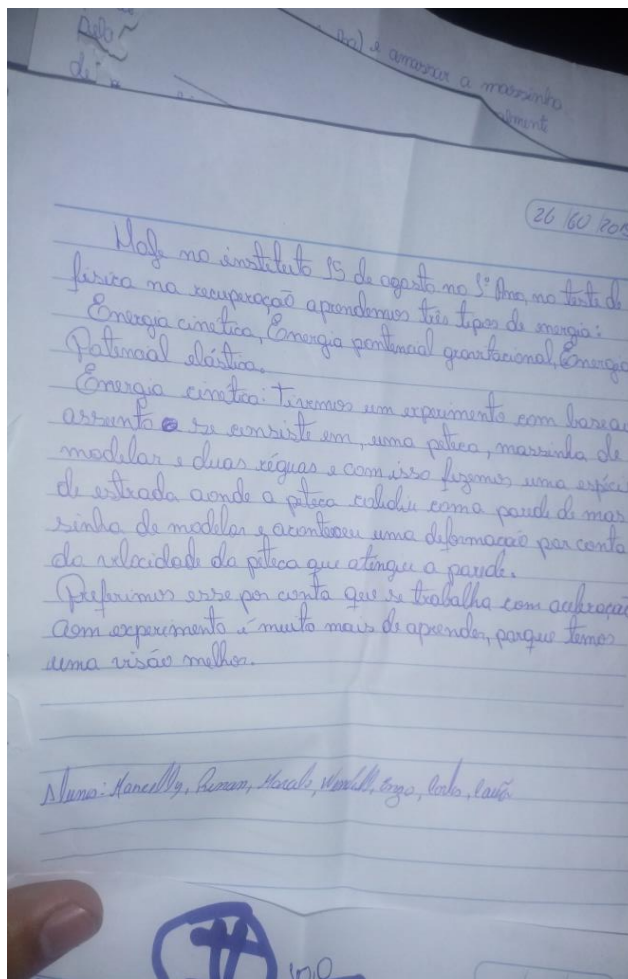 Pelo
de
e amassar a massinha
(26/60/201
Hoje no instituto 15 de agosto no 1º Ano, no teste de
física na recuperação aprendemos três tipos de energia:
Energia cinetica, Energia pontencial gravitacional, Energia
Potencial elástica.
Energia cinetica: Tivemos um experimento com base ao
assunto se consiste em, uma peteca, massinha de
modelar e duas réguas e com isso fizemos uma espéci
de estrada aonde a peteca colidiu com a parede de mas
sinha de modelar e aconteceu uma deformacao por conta
da velocidade da peteca que atingiu a parede.
Preferimos esse por conta que se trabalha com aceleração
com experimento é muito mais de aprender, porque temos
uma visão melhor.
Aluno: